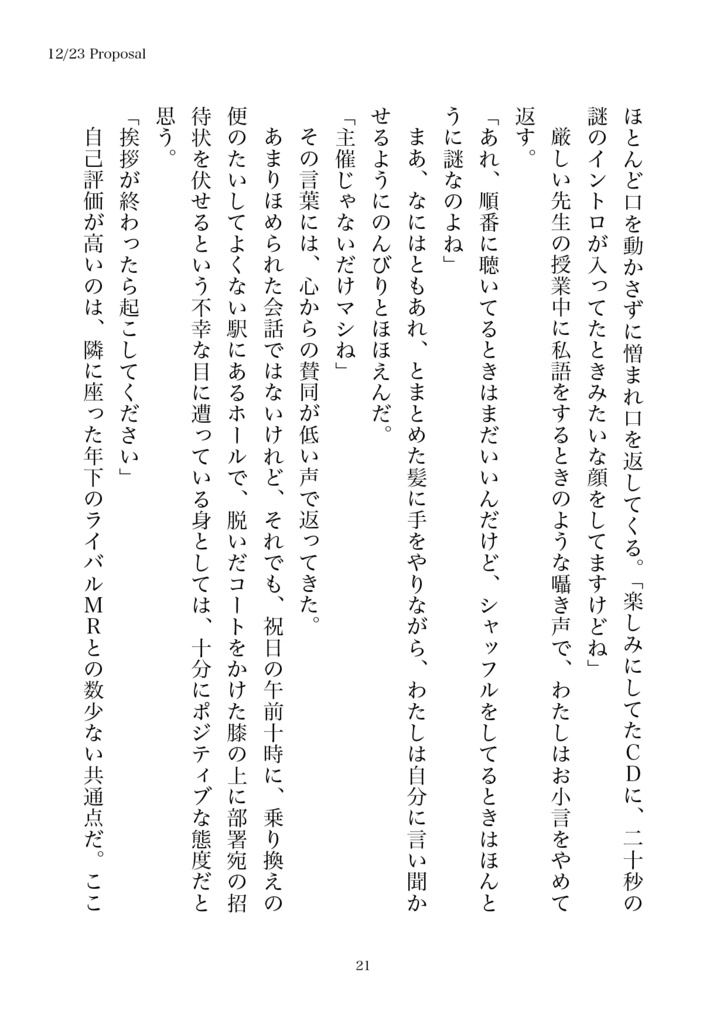 12/23 Proposal
ほとんど口を動かさずに憎まれ口を返してくる。「楽しみにしてたＣＤに、二十秒の
謎のイントロが入ってたときみたいな顔をしてますけどね」
厳しい先生の授業中に私語をするときのような囁き声で、わたしはお小言をやめて
返す。
「あれ、順番に聴いてるときはまだいいんだけど、シャッフルをしてるときはほんと
うに謎なのよね」
まあ、なにはともあれ、とまとめた髪に手をやりながら、わたしは自分に言い聞か
せるようにのんびりとほほえんだ。
「主催じゃないだけマシね」
その言葉には、心からの賛同が低い声で返ってきた。
あまりほめられた会話ではないけれど、それでも、祝日の午前十時に、乗り換えの
便のたいしてよくない駅にあるホールで、脱いだコートをかけた膝の上に部署宛の招
待状を伏せるという不幸な目に遭っている身としては、十分にポジティブな態度だと
思う。
「挨拶が終わったら起こしてください」
自己評価が高いのは、隣に座った年下のライバルＭＲとの数少ない共通点だ。ここ
21